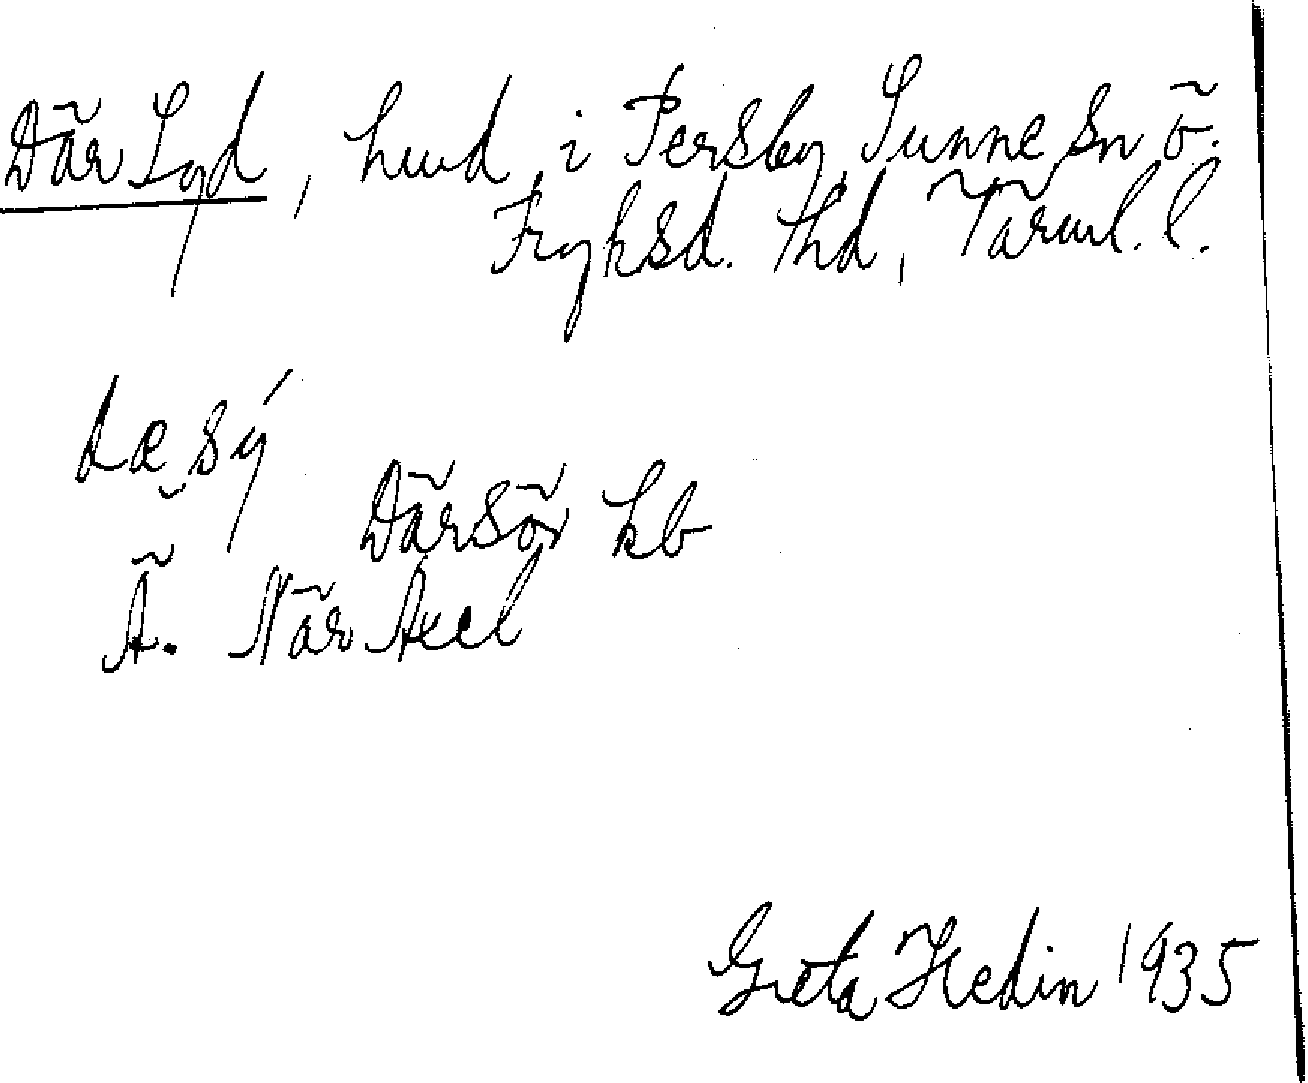 Där Syd, hmd i Persby, Sunne sn ö.
Fryksd. hd, Värml. l.
dæ sý
Därsö kb
Ä. När Axel
Greta Hedin 1935